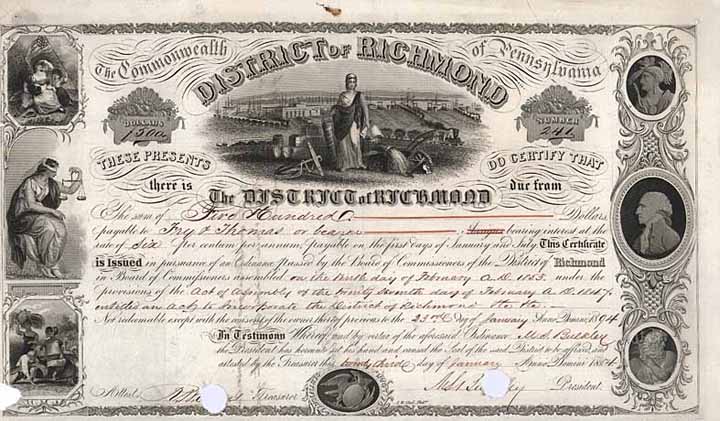 The Commonwealth of Pennsylvania
DISTRICT OF RICHMOND
DOLLARS
$500
NUMBER
241
THESE PRESENTS DO CERTIFY THAT
there is due from
The DISTRICT of RICHMOND
The sum of Five Hundred Dollars
payable to Fry & Thomas or bearer bearing interest at the
rate of Six per centum per annum, payable on the first days of January and July. This Certificate
is Issued in pursuance of an Ordinance passed by the Board of Commissioners of the District of Richmond
in Board of Commissioners assembled on the day of February A.D. 1853, under the
provisions of the Act of Assembly of the twenty seventh day of February A.D. 1847,
entitled an Act to Incorporate the District of Richmond
Not redeemable except with the consent of the owner thereof previous to the 23rd day of January Anno Domini 1894
In Testimony Whereof and by virtue of the aforesaid Ordinance
the President has hereunto set his hand and caused the Seal of the said District to be affixed, and
attested by the Treasurer this twenty third day of January Anno Domini 1854.
Attest, Treasurer President.